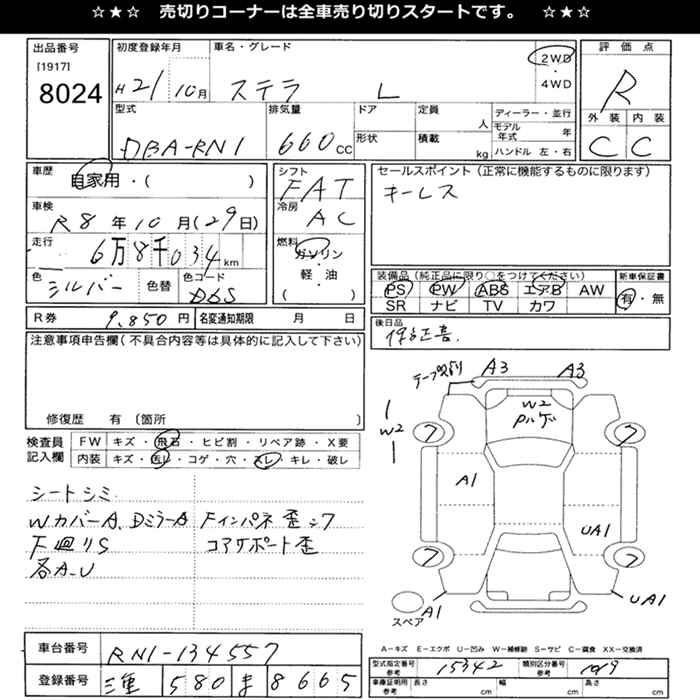 ☆★☆ 売切りコーナーは全車売り切りスタートです。 ☆★☆
出品番号
[1917]
8024
初度登録年月
H21年10月
車名・グレード
ステラ L
2WD
・
4WD
評価点
R
外装 内装
C C
型式
DBA-RN1
排気量
660cc
ドア
形状
定員 人
積載 kg
ディーラー・並行
モデル年式 年
ハンドル 左・右
車歴
自家用・( )
車検
R8年10月(29日)
走行
6万8千034km
色
シルバー
色替
色コード
D6S
シフト
FAT
冷房
AC
燃料
ガソリン
・
軽・油
( )
セールスポイント(正常に機能するものに限ります)
キーレス
装備品(純正品に限り○をつけてください)
PS PW ABS エアB AW
SR ナビ TV カワ
新車保証書
有・無
後日品
R券 9,850円
名変通知期限 月 日
注意事項申告欄(不具合内容等は具体的に記入して下さい)
修復歴 有〔箇所 〕
検査員
記入欄
FW キズ・飛石・ヒビ割・リペア跡・X要
内装 キズ・汚レ・コゲ・穴・スレ・キレ・破レ
シートシミ
WカバーA、DミラーA
F廻りS
各A-U
Fインパネ歪シワ
コアサポート歪
A3 A3
W2
W2
A1
UA1
A1
UA1
スペア
A-キズ E-エクボ U-凹み W-補修跡 S-サビ C-腐食 XX-交換済
車台番号 RN1-134557
登録番号 三重 580 ま 8665
型式指定番号
参考
15342
類別区分番号
参考
1019
車庫証明用
参考
長さ cm 幅 cm 高さ cm